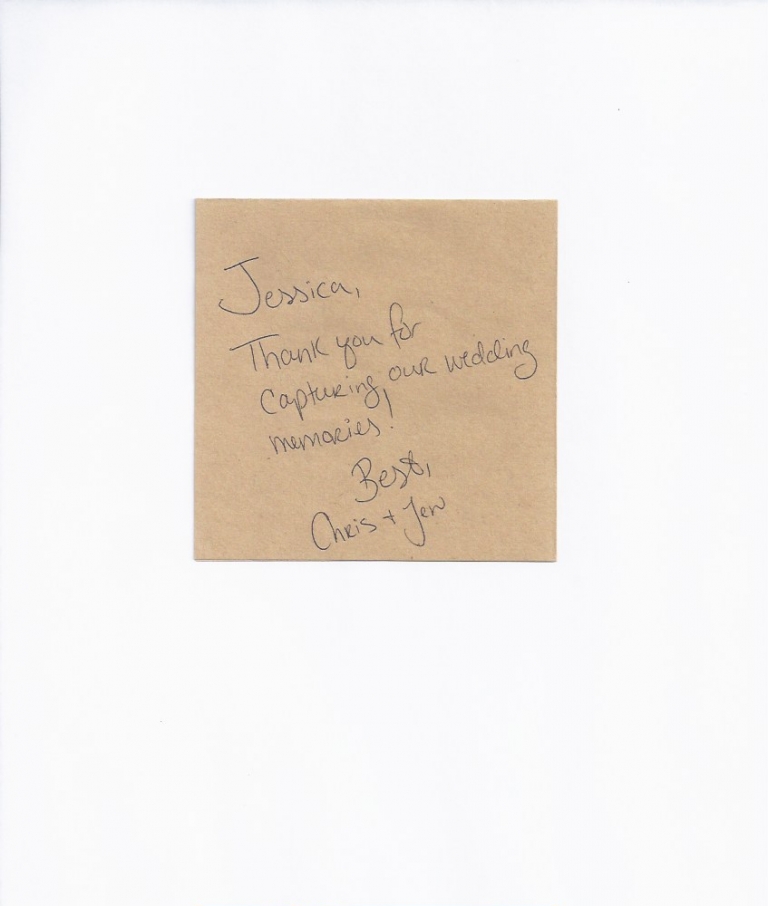 Jessica,
Thank you for
capturing our wedding
memories!
Best,
Chris + Jen